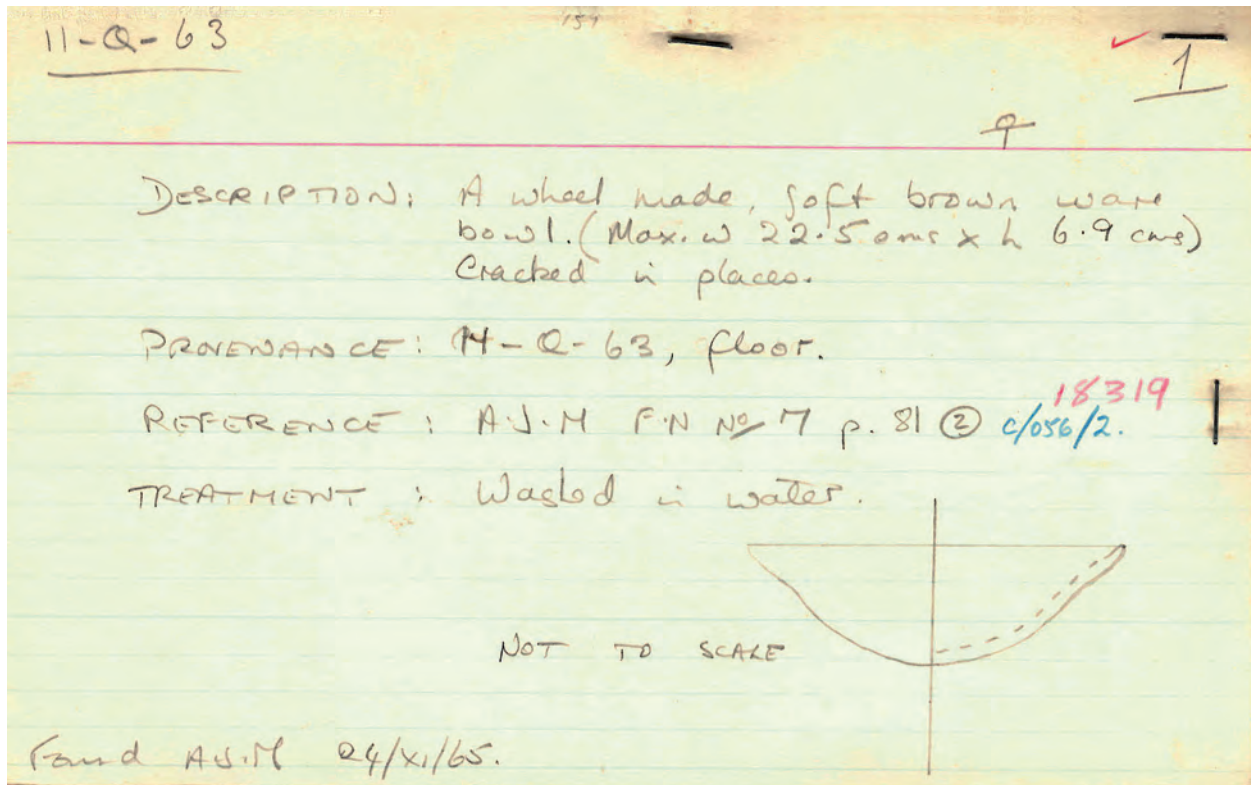 11-Q-63
'51
1
DESCRIPTION: A wheel made, soft brown ware
bowl. (Max. w 22.5 cms x h 6.9 cms)
Cracked in places.
PROVENANCE: 11-Q-63, floor.
18319
REFERENCE: A.J.M F.N No 7 p. 81 ② c/056/2.
TREATMENT: Washed in water.
NOT TO SCALE
Found A.J.M 24/XI/65.